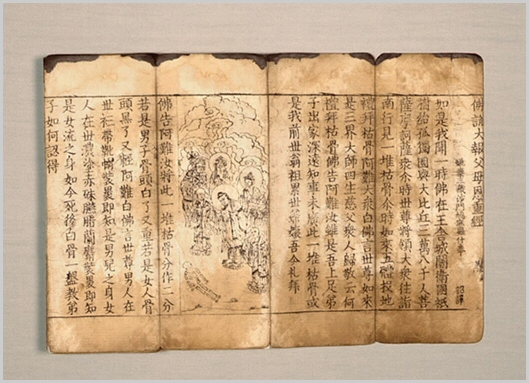 佛說大報父母恩重經
姚秦三藏法師鳩摩羅什奉 詔譯
如是我聞一時佛在王舍城闍衛國祇
樹給孤獨園與大比丘三萬八千人菩
薩摩訶薩衆尒時世尊將領大衆往詣
南行見一堆枯骨尒時如來五體投地
禮拜枯骨阿難大衆白佛言世尊如來
是三界大師四生慈父衆人歸敬云何
禮拜枯骨佛告阿難汝雖是吾上足弟
子出家深遠知事未廣此一堆枯骨或
是我前世翁祖累世爺孃吾今禮拜
佛告阿難汝將此一堆枯骨分作二分
若是男子骨頭白了又重若是女人骨
頭黑了又輕阿難白佛言世尊男人在
世衫帶鞋裝裹即知是男兒之身女
人在世濃塗赤硃臙脂蘭麝裝裹即知
是女流之身如今死後白骨一盤教弟
子如何認得